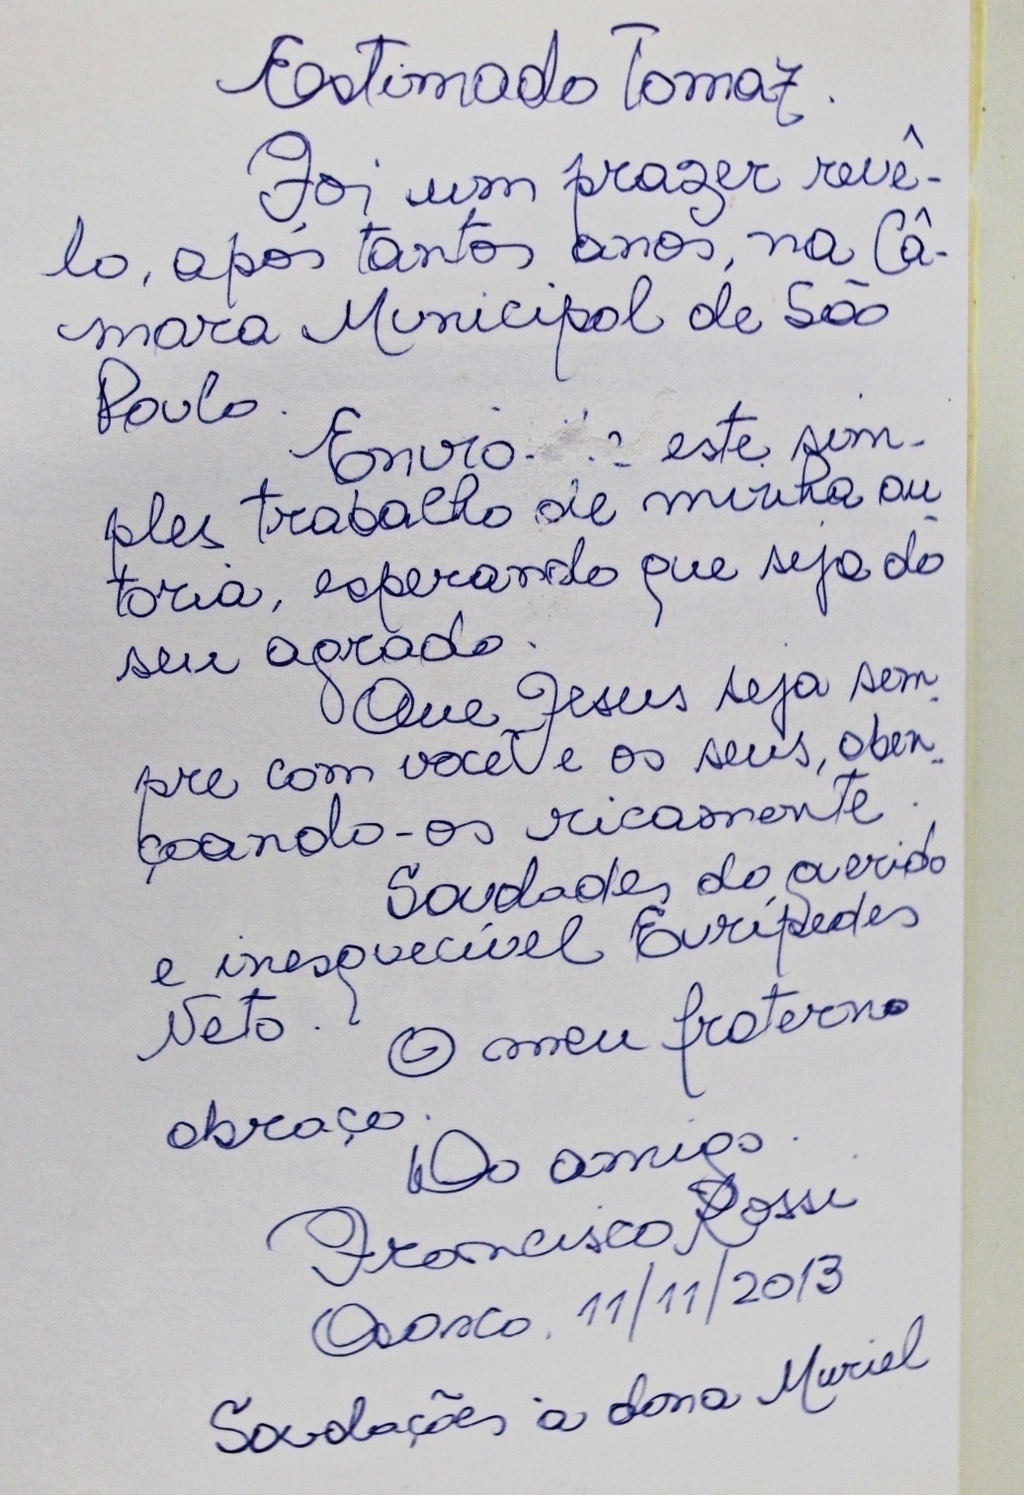 Estimado Tomaz.
Foi um prazer revê-
lo, após tantos anos, na Câ-
mara Municipal de São
Paulo.
Envio- este sim-
ples trabalho de minha au
toria, esperando que seja do
seu agrado.
Que Jesus seja sem-
pre com você e os seus, aben-
çoando-os ricamente.
Saudades do querido
e inesquecível Eurípedes
Neto.
O meu fraterno
abraço.
Do amigo.
Francisco Rossi
Osasco, 11/11/2013
Saudações à dona Muriel